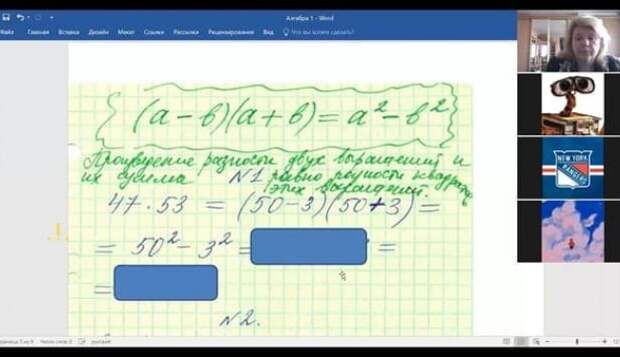 Алгебра 1 - Word
Файл Главная Вставка Дизайн Макет Ссылки Рассылки Рецензирование Вид Что вы хотите сделать?
(а - в)(а + в) = а² - в²
Произведение разности двух выражений и
их сумма N1 равно разности квадратов
этих выражений.
47 · 53 = (50 - 3)(50 + 3) =
= 50² - 3² = =
=
N2.
NEW YORK
RANGERS